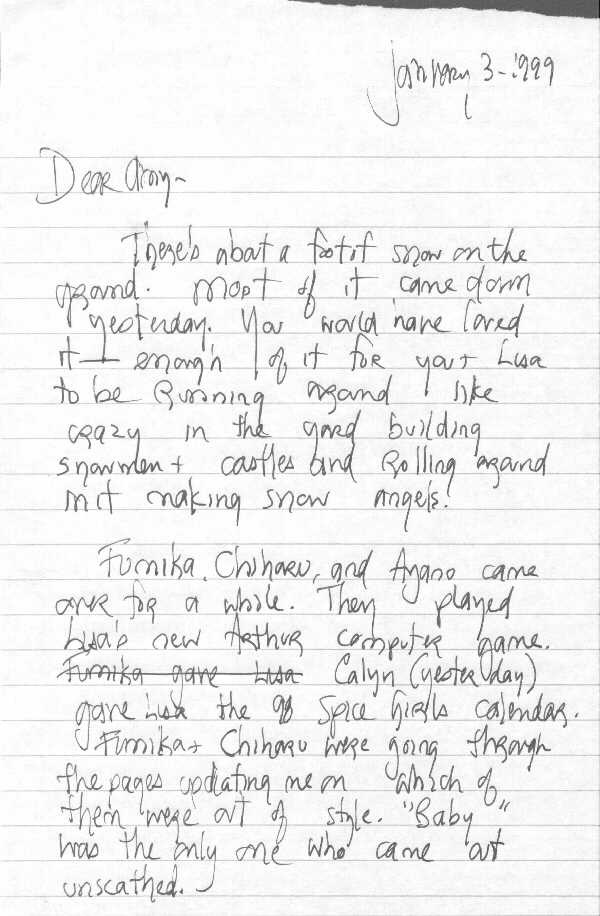 January 3-1999
Dear Amy-
There's about a foot of snow on the
ground. Most of it came down
yesterday. You would have loved
it — enough of it for you + Lisa
to be Running around like
crazy in the yard building
snowmen + castles and Rolling around
in it making snow angels.
Fumika, Chiharu, and Ayano came
over for a while. They played
Lisa's new Arthur computer game.
Fumika gave Lisa Calyn (yesterday)
gave Lisa the 98 Spice Girls calendar.
Fumika + Chiharu were going through
the pages updating me on which of
them were out of style. "Baby"
was the only one who came out
unscathed.